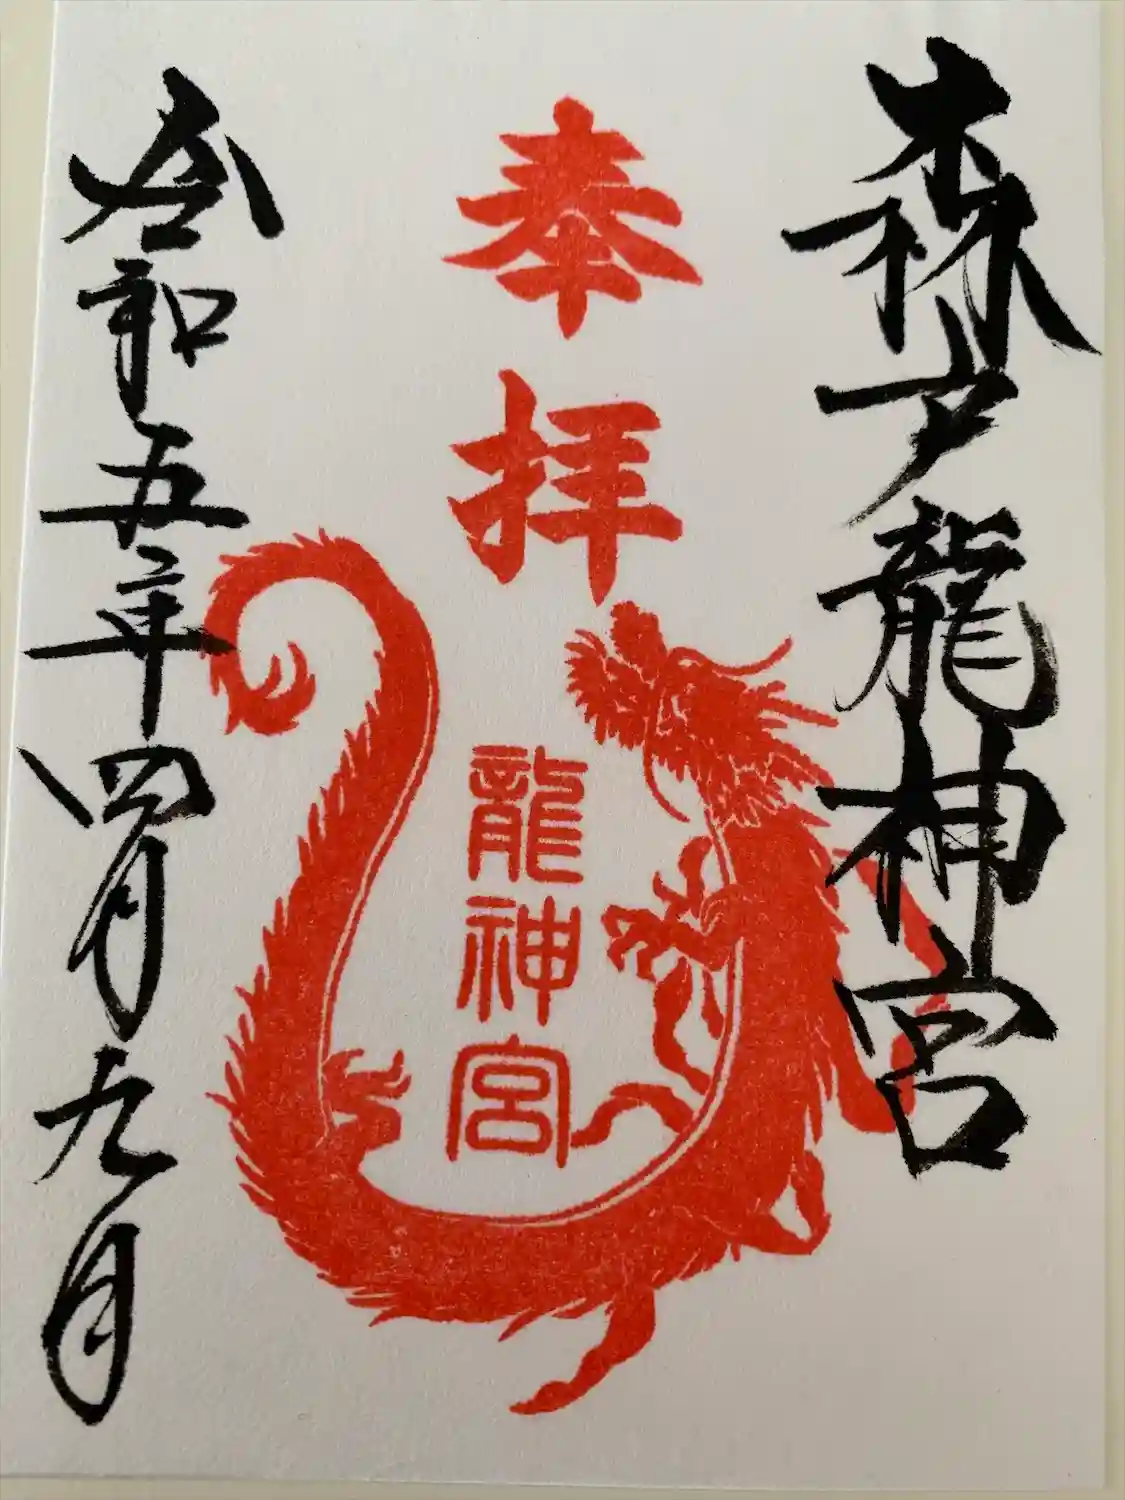 森戸龍神宮
奉拝
龍神宮
令和五年四月九日